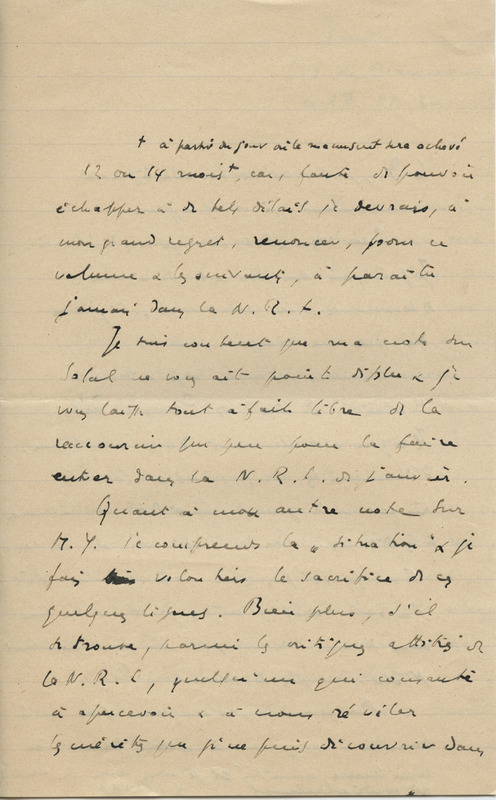 + à partir du jour où le manuscrit sera achevé
12 ou 14 mois+, car, faute de pouvoir
échapper à de tels délais je devrais, à
mon grand regret, renoncer, pour ce
volume & les suivants, à paraître
jamais dans la N. R. F.
Je suis content que ma note sur
Solal ne vous ait point déplu & je
vous laisse tout à fait libre de la
raccourcir un peu pour la faire
entrer dans la N. R. F. de janvier.
Quant à mon autre note sur
M. Y. je comprends la „ situation " & je
fais volontiers le sacrifice de ces
quelques lignes. Bien plus, s'il
se trouve, parmi les critiques attitrés de
la N. R. F, quelqu'un qui consente
à apercevoir & à nous révéler
les mérites que je ne puis découvrir dans